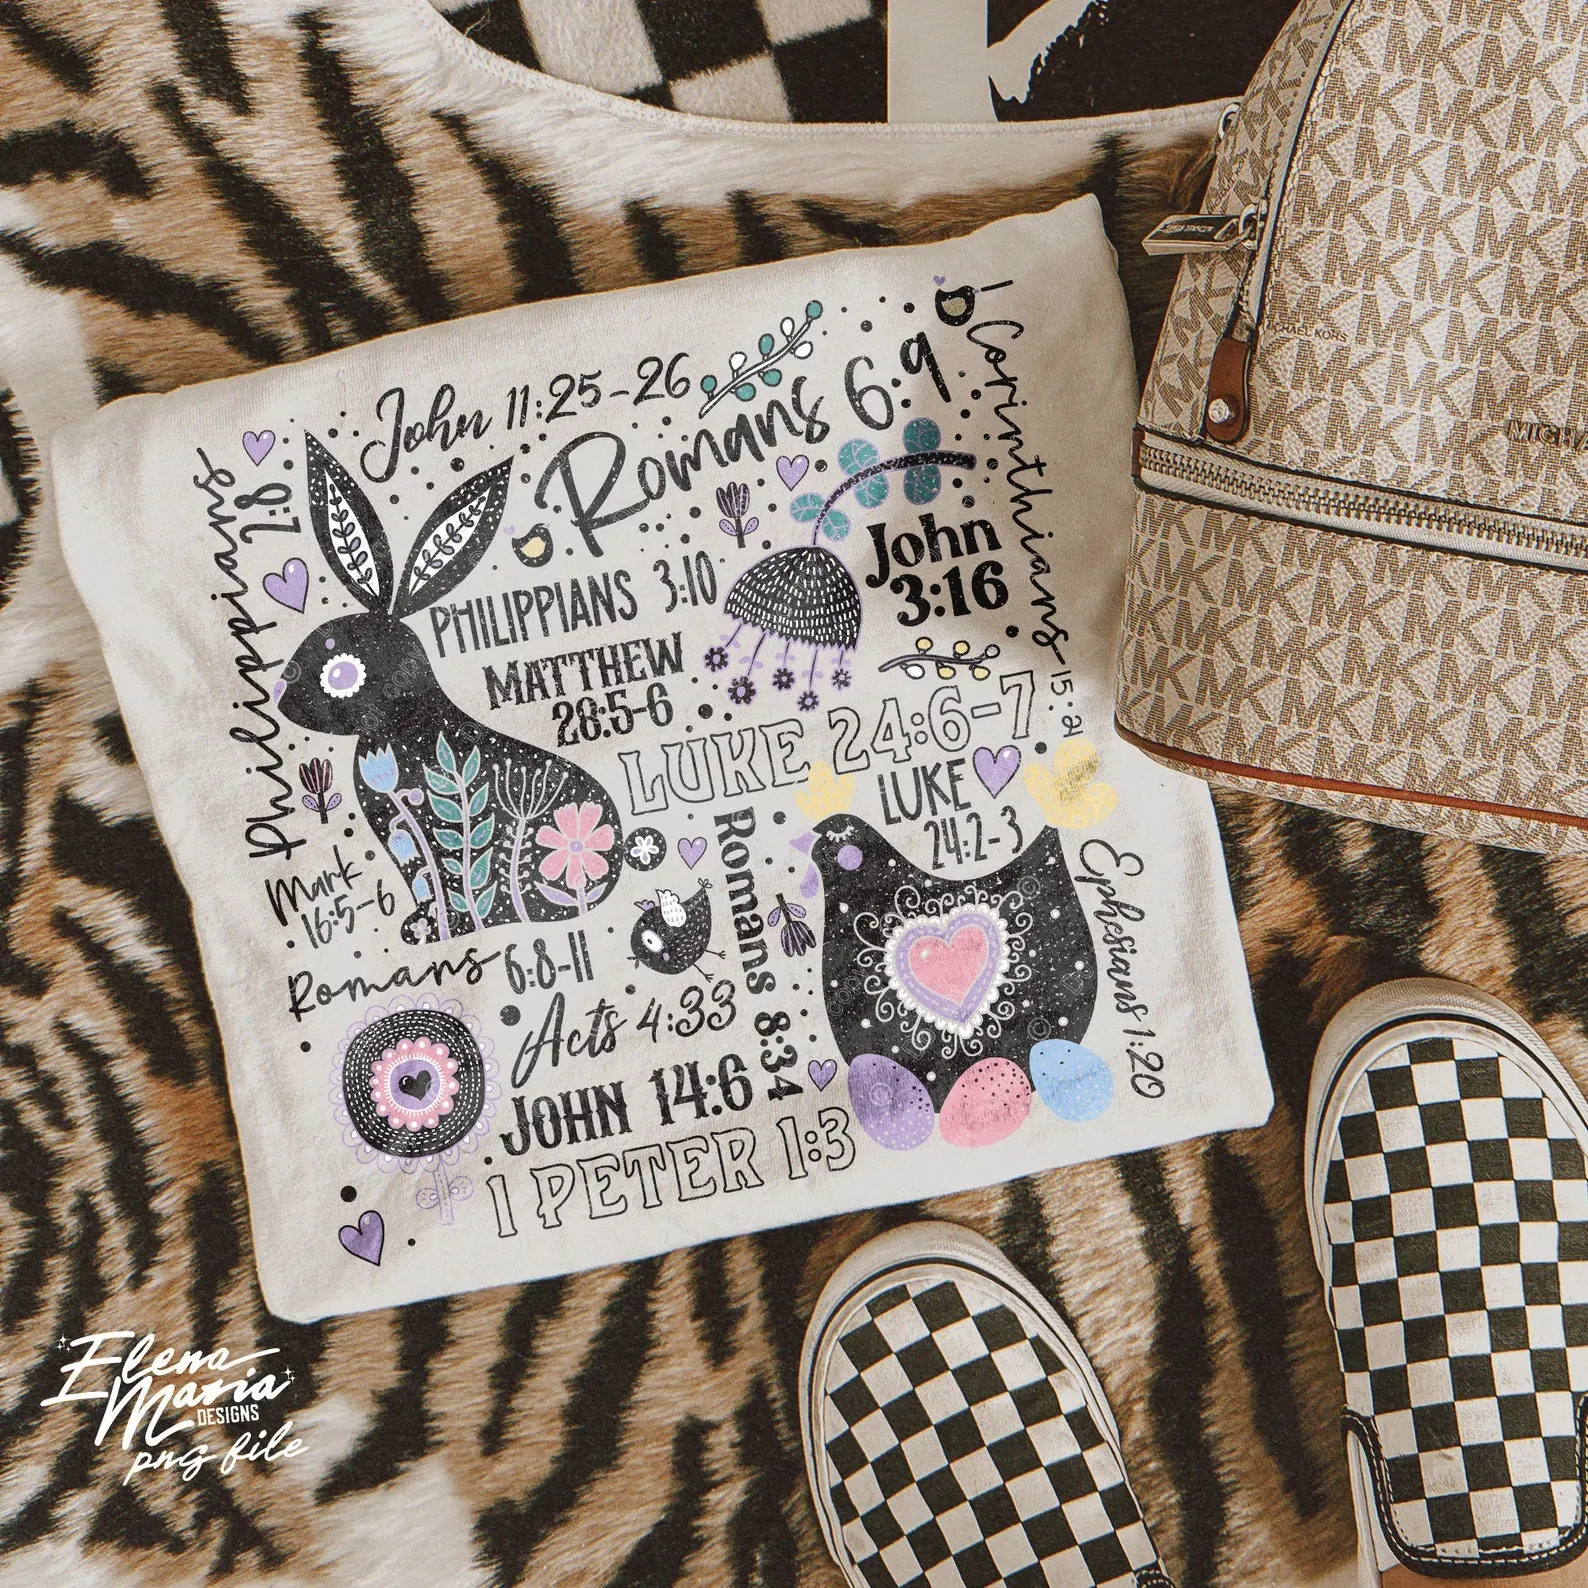 John 11:25-26
Romans 6:9
1 Corinthians 15:21
Philippians 2:8
John
3:16
PHILIPPIANS 3:10
MATTHEW
28:5-6
LUKE 24:6-7
LUKE
24:2-3
Mark
16:5-6
Romans 6:8-11
Romans 8:34
Ephesians 1:20
Acts 4:33
JOHN 14:6
1 PETER 1:3
MICHAEL KORS
Elena
Maria
DESIGNS
png file